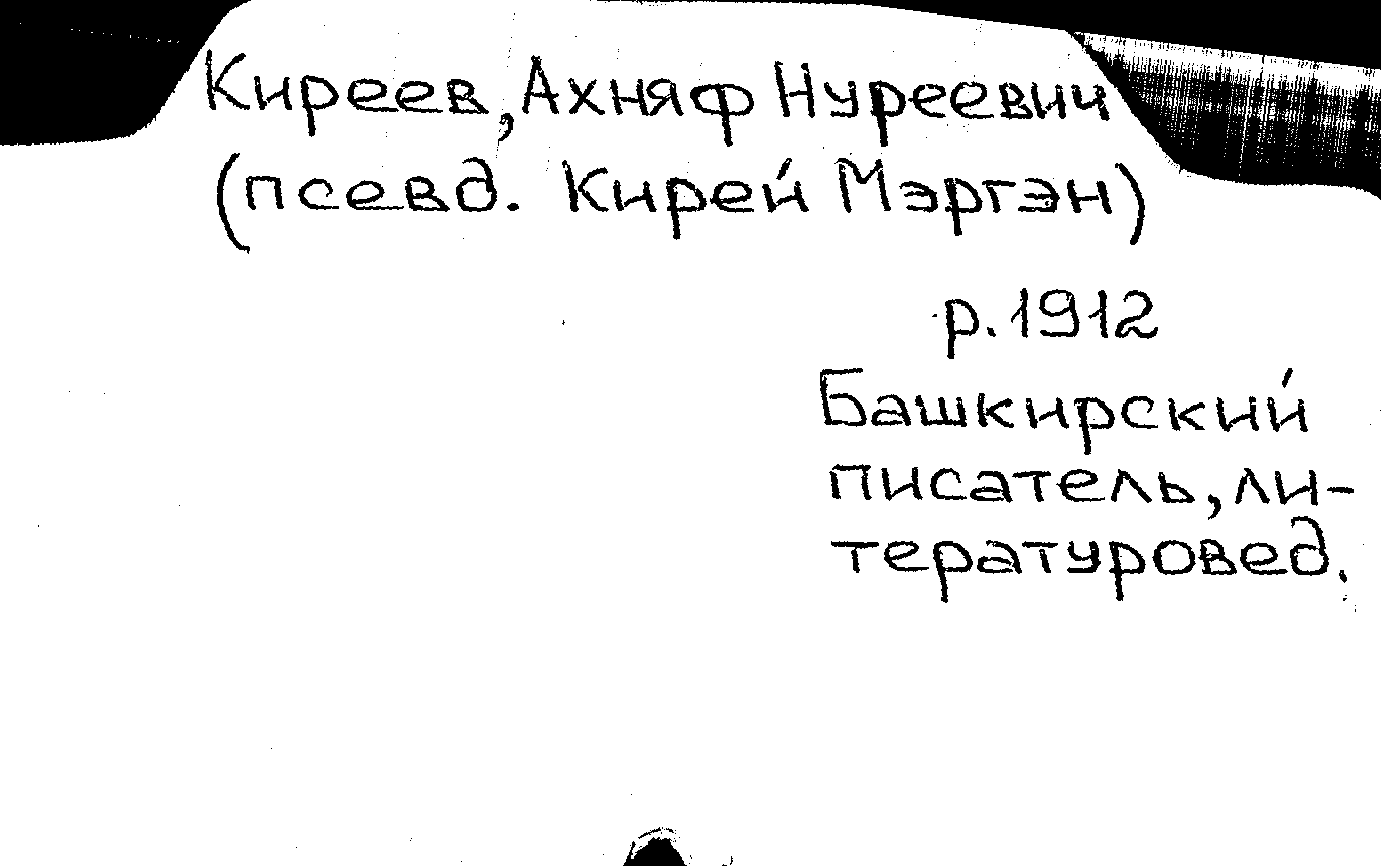 Киреев, Ахняф Нуреевич
(псевд. Кирей Мэргэн)
р. 1912
Башкирский
писатель, ли-
тературовед.